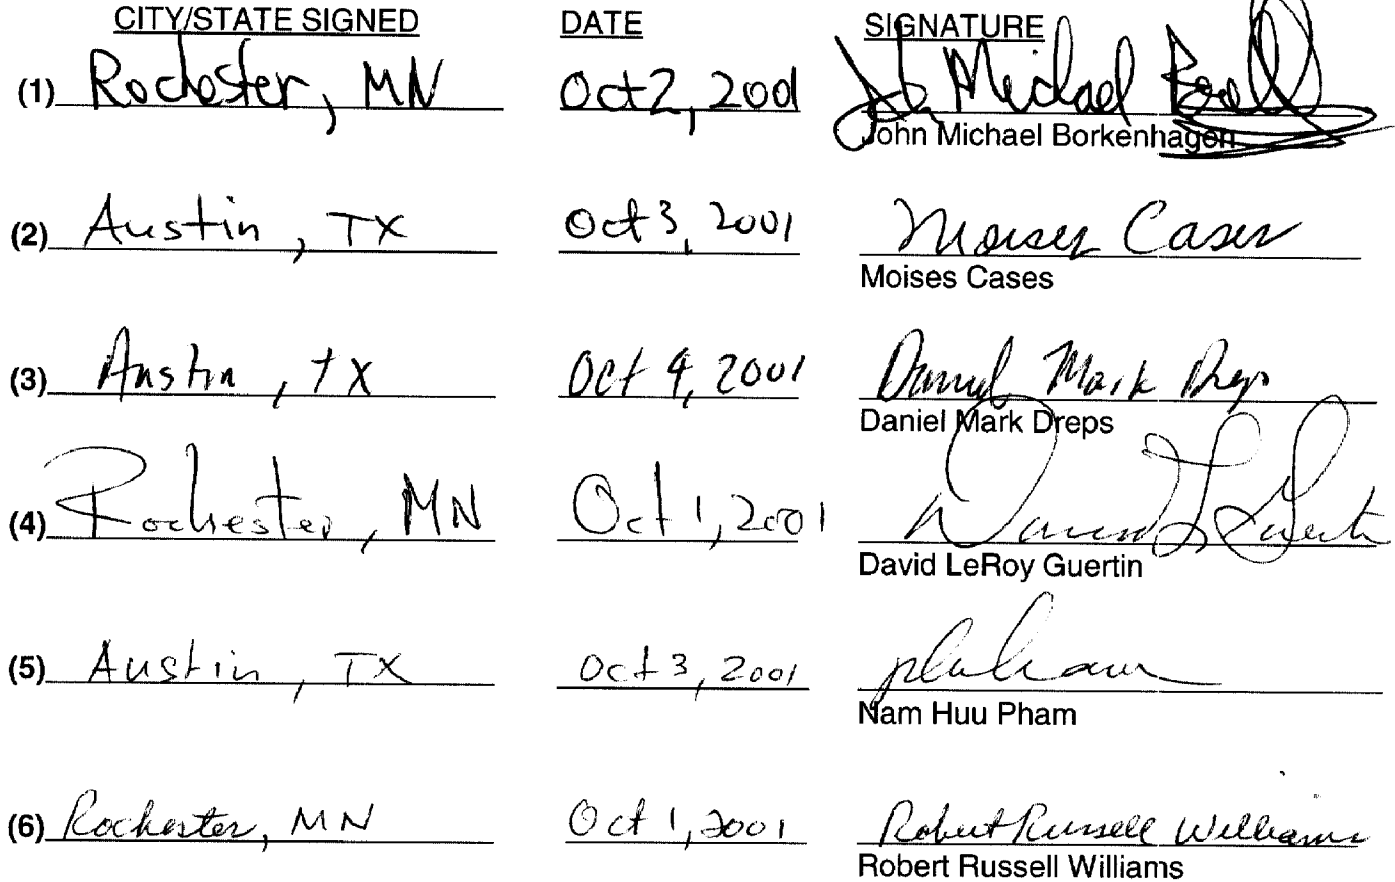 CITY/STATE SIGNED DATE SIGNATURE
(1) Rochester, MN Oct 2, 2001 John Michael
John Michael Borkenhagen
(2) Austin, TX Oct 3, 2001 Moises Cases
Moises Cases
(3) Austin, TX Oct 4, 2001 Daniel Mark Dreps
Daniel Mark Dreps
(4) Rochester, MN Oct 1, 2001 David L Guertin
David LeRoy Guertin
(5) Austin, TX Oct 3, 2001
Nam Huu Pham
(6) Rochester, MN Oct 1, 2001 Robert Russell Williams
Robert Russell Williams